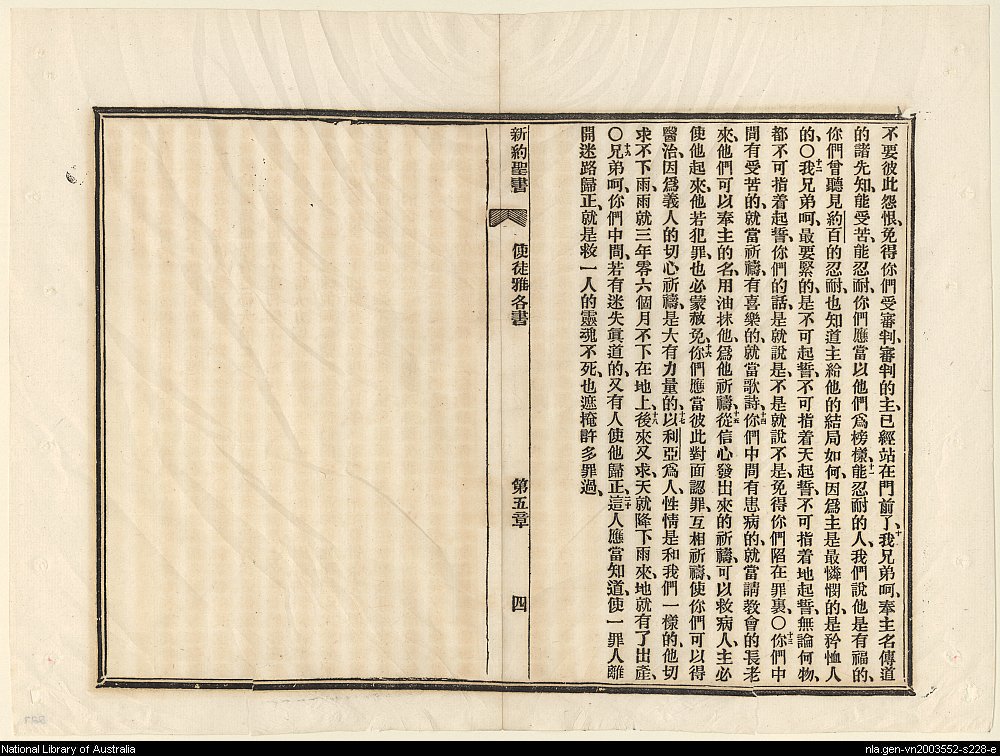 不要彼此怨恨、免得你們受審判、審判的主、已經站在門前了、十我兄弟呵、奉主名傳道
的諸先知、能受苦、能忍耐、你們應當以他們爲榜樣、十一能忍耐的人、我們說他是有福的、
你們曾聽見約百的忍耐、也知道主給他的結局如何、因爲主是最憐憫的、是矜恤人
的、〇十二我兄弟呵、最要緊的、是不可起誓、不可指着天起誓、不可指着地起誓、無論何物、
都不可指着起誓、你們的話、是就說是、不是就說不是、免得你們陷在罪裏、〇十三你們中
間有受苦的、就當祈禱、有喜樂的、就當歌詩、十四你們中間有患病的、就當請教會的長老
來、他們可以奉主的名、用油抹他、爲他祈禱、十五從信心發出來的祈禱、可以救病人、主必
使他起來、他若犯罪、也必蒙赦免、十六你們應當彼此對面認罪、互相祈禱、使你們可以得
醫治、因爲義人的切心祈禱、是大有力量的、十七以利亞爲人、性情是和我們一樣的、他切
求不下雨、雨就三年零六個月不下在地上、十八後來又求、天就降下雨來、地就有了出產、
〇十九兄弟呵、你們中間、若有迷失眞道的、又有人使他歸正、二十這人應當知道、使一罪人離
開迷路歸正、就是救一人的靈魂不死、也遮掩許多罪過、
新約聖書 使徒雅各書 第五章 四
National Library of Australia
nla.gen-vn2003552-s228-e